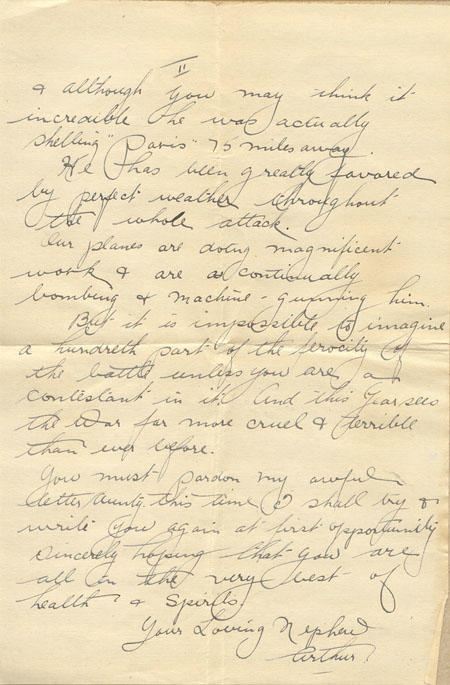 II
& although you may think it
incredible he was actually
shelling "Paris" 75 miles away.
He has been greatly favored
by perfect weather throughout
the whole attack.
Our planes are doing magnificent
work & are a continually
bombing & machine-gunning him.
But it is impossible to imagine
a hundreth part of the ferocity of
the battle unless you are a
contestant in it. And this Year sees
the War far more cruel & terrible
than ever before.
You must pardon my awful
letter Aunty this time I shall try &
write you again at first opportunity
Sincerely hoping that you are
all in the very best of
health & Spirits.
Your Loving Nephew
Arthur.